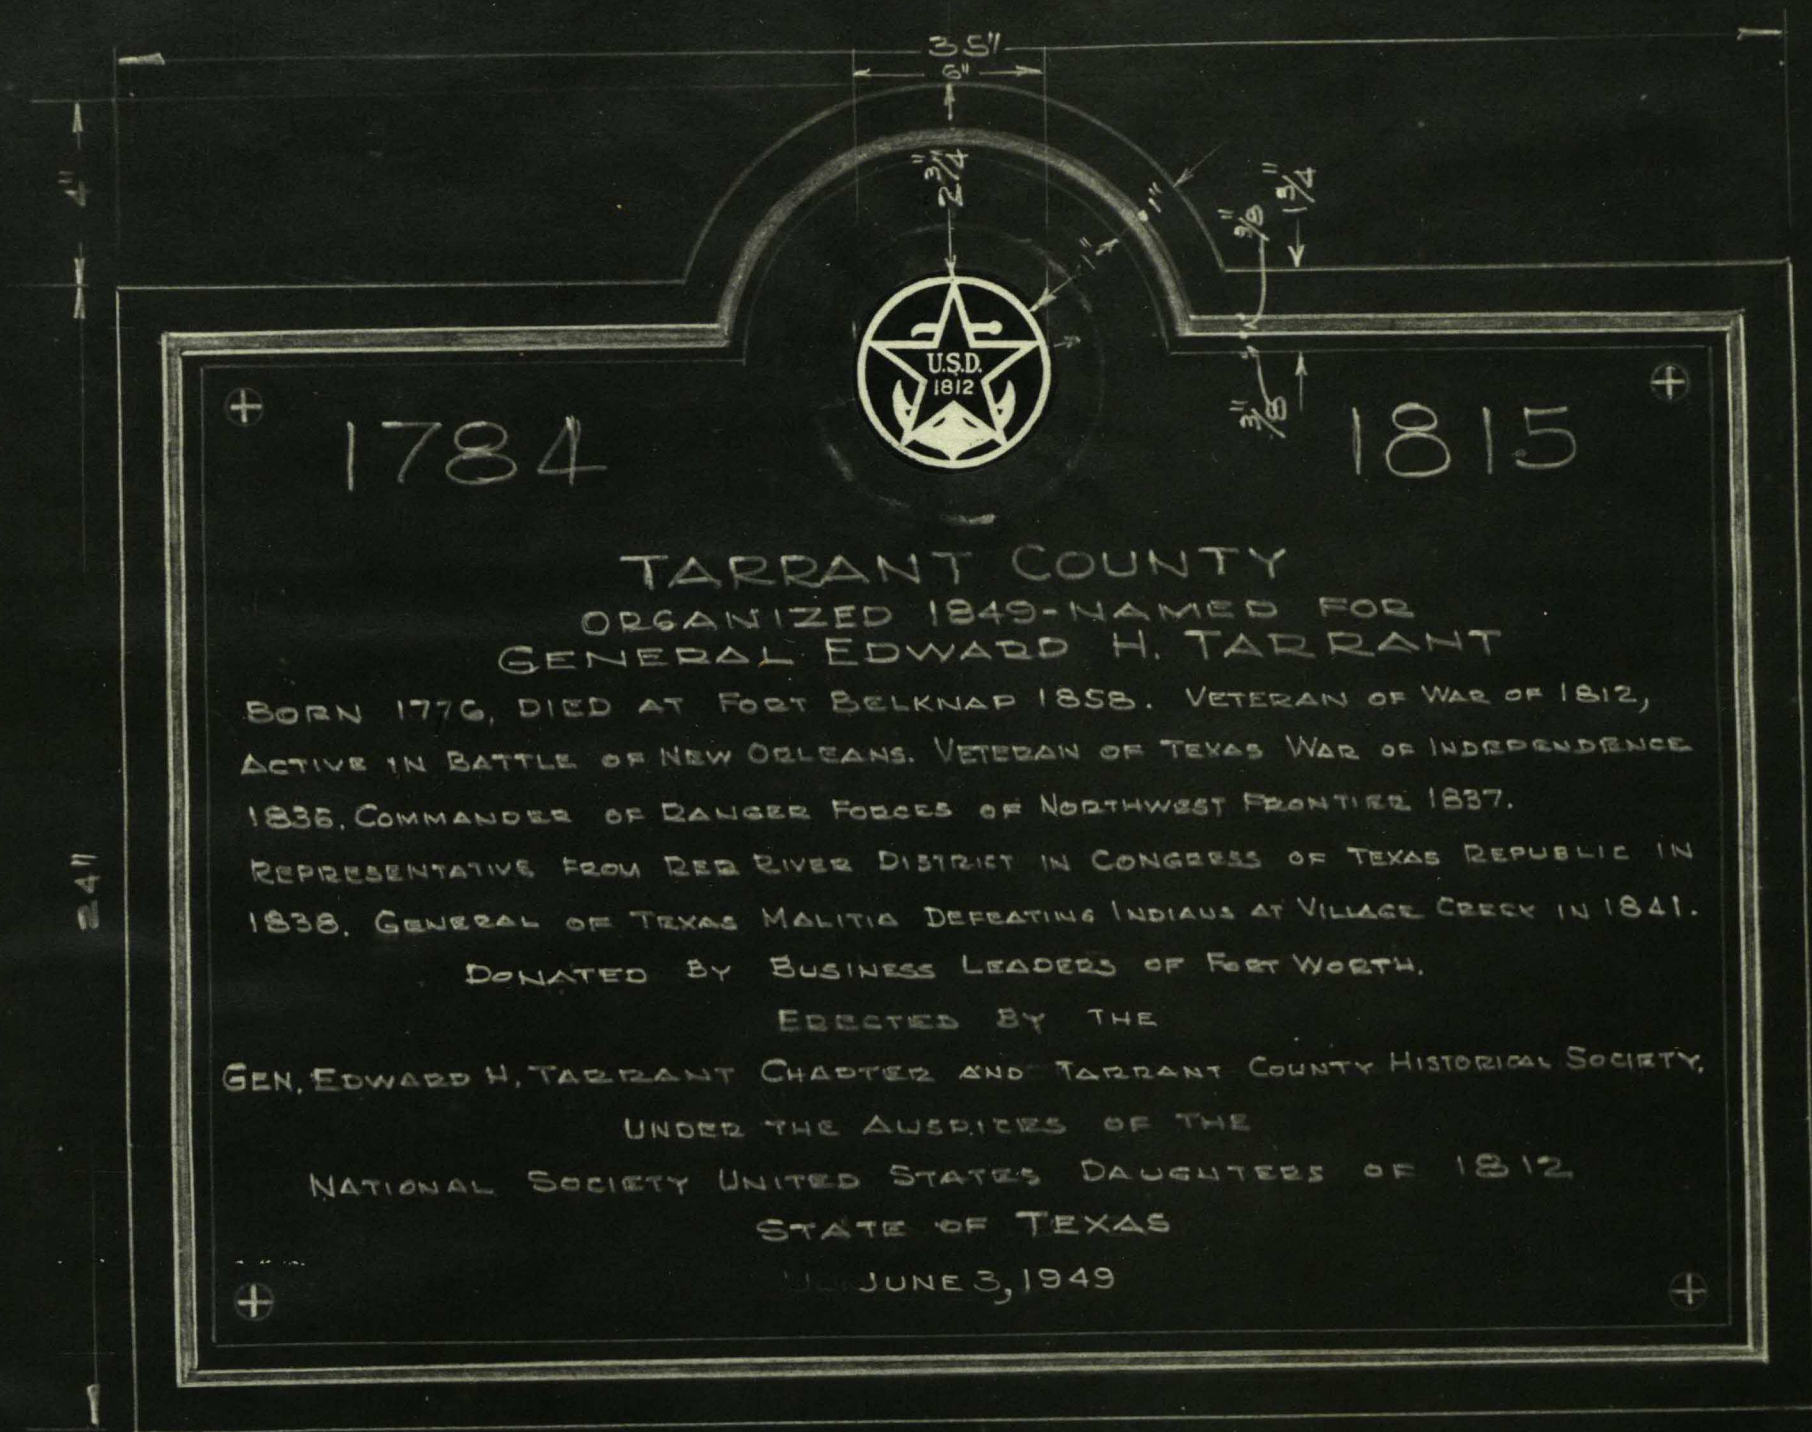 35"
6"
4"
2 3/4"
1"
1"
3/8"
1 3/4"
3/8"
24"
U.S.D.
1812
1784 1815
TARRANT COUNTY
ORGANIZED 1849-NAMED FOR
GENERAL EDWARD H. TARRANT
BORN 1776, DIED AT FORT BELKNAP 1858. VETERAN OF WAR OF 1812,
ACTIVE IN BATTLE OF NEW ORLEANS. VETERAN OF TEXAS WAR OF INDEPENDENCE
1836. COMMANDER OF RANGER FORCES OF NORTHWEST FRONTIER 1837.
REPRESENTATIVE FROM RED RIVER DISTRICT IN CONGRESS OF TEXAS REPUBLIC IN
1838. GENERAL OF TEXAS MALITIA DEFEATING INDIANS AT VILLAGE CREEK IN 1841.
DONATED BY BUSINESS LEADERS OF FORT WORTH.
ERECTED BY THE
GEN. EDWARD H. TARRANT CHAPTER AND TARRANT COUNTY HISTORICAL SOCIETY.
UNDER THE AUSPICIES OF THE
NATIONAL SOCIETY UNITED STATES DAUGHTERS OF 1812
STATE OF TEXAS
JUNE 3, 1949